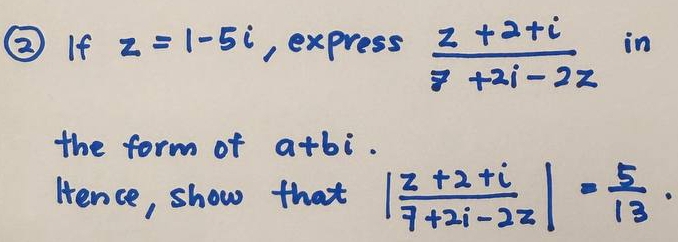 ② If z = 1-5i, express z +2+i / 7 +2i-2z in
the form of a+bi.
Hence, show that |z +2+i / 7+2i-2z| = 5/13.